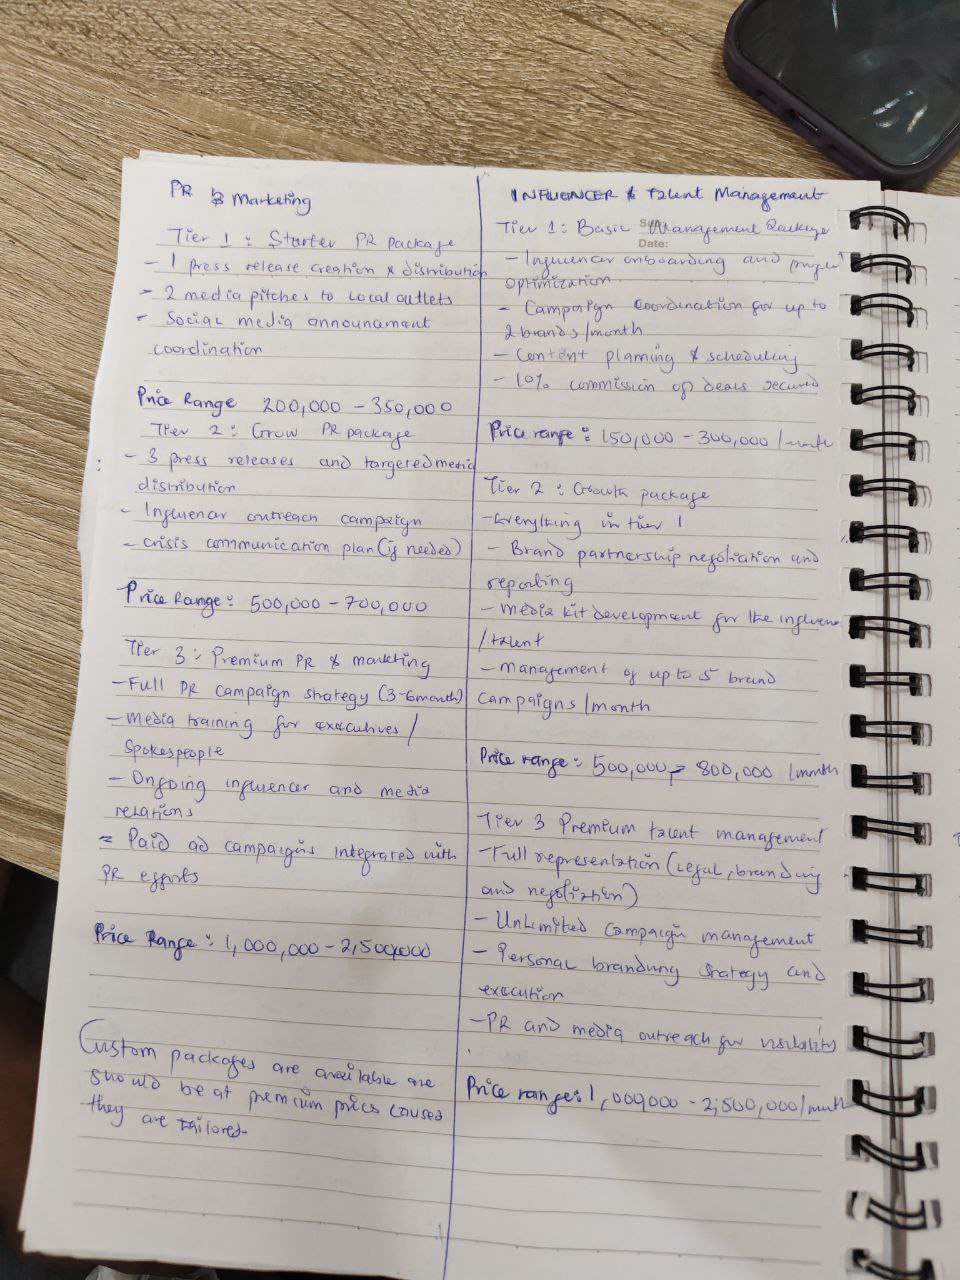 PR & Marketing
Tier 1: Starter PR package
- 1 press release creation & distribution
- 2 media pitches to Local outlets
- Social media announament
coordination
Price Range 200,000 - 350,000
Tier 2: Grow PR package
- 3 press releases and targeted media
distribution
- Influencer outreach campaign
- crisis communication plan (if needed)
Price Range: 500,000 - 700,000
Tier 3: Premium PR & marketing
- Full PR campaign strategy (3-6month)
- Media training for executives /
Spokespeople
- Ongoing influencer and media
relations
= Paid ad campaigns integrated with
PR efforts
Price Range: 1,000,000 - 2,500,000
Custom packages are available are
should be at premium prices causes
they are tailored
INFLUENCER & Talent Management
Tier 1: Basic Management Package
Date:
- Influencer onboarding and
optimization
- Campaign coordination for up to
2 brands/month
- Content planning & scheduling
- 10% commission of deals secured
Price range: 150,000 - 300,000 /month
Tier 2: Growth package
- Everything in tier 1
- Brand partnership negotiation and
reporting
- Media kit development for the influencer
/talent
- management of up to 5 brand
campaigns/month
Price range: 500,000 - 800,000 /month
Tier 3 Premium talent management
- Full representation (Legal, branding
and negotiation)
- Unlimited campaign management
- Personal branding strategy and
execution
- PR and media outreach for visibility
Price range: 1,000,000 - 2,500,000/month